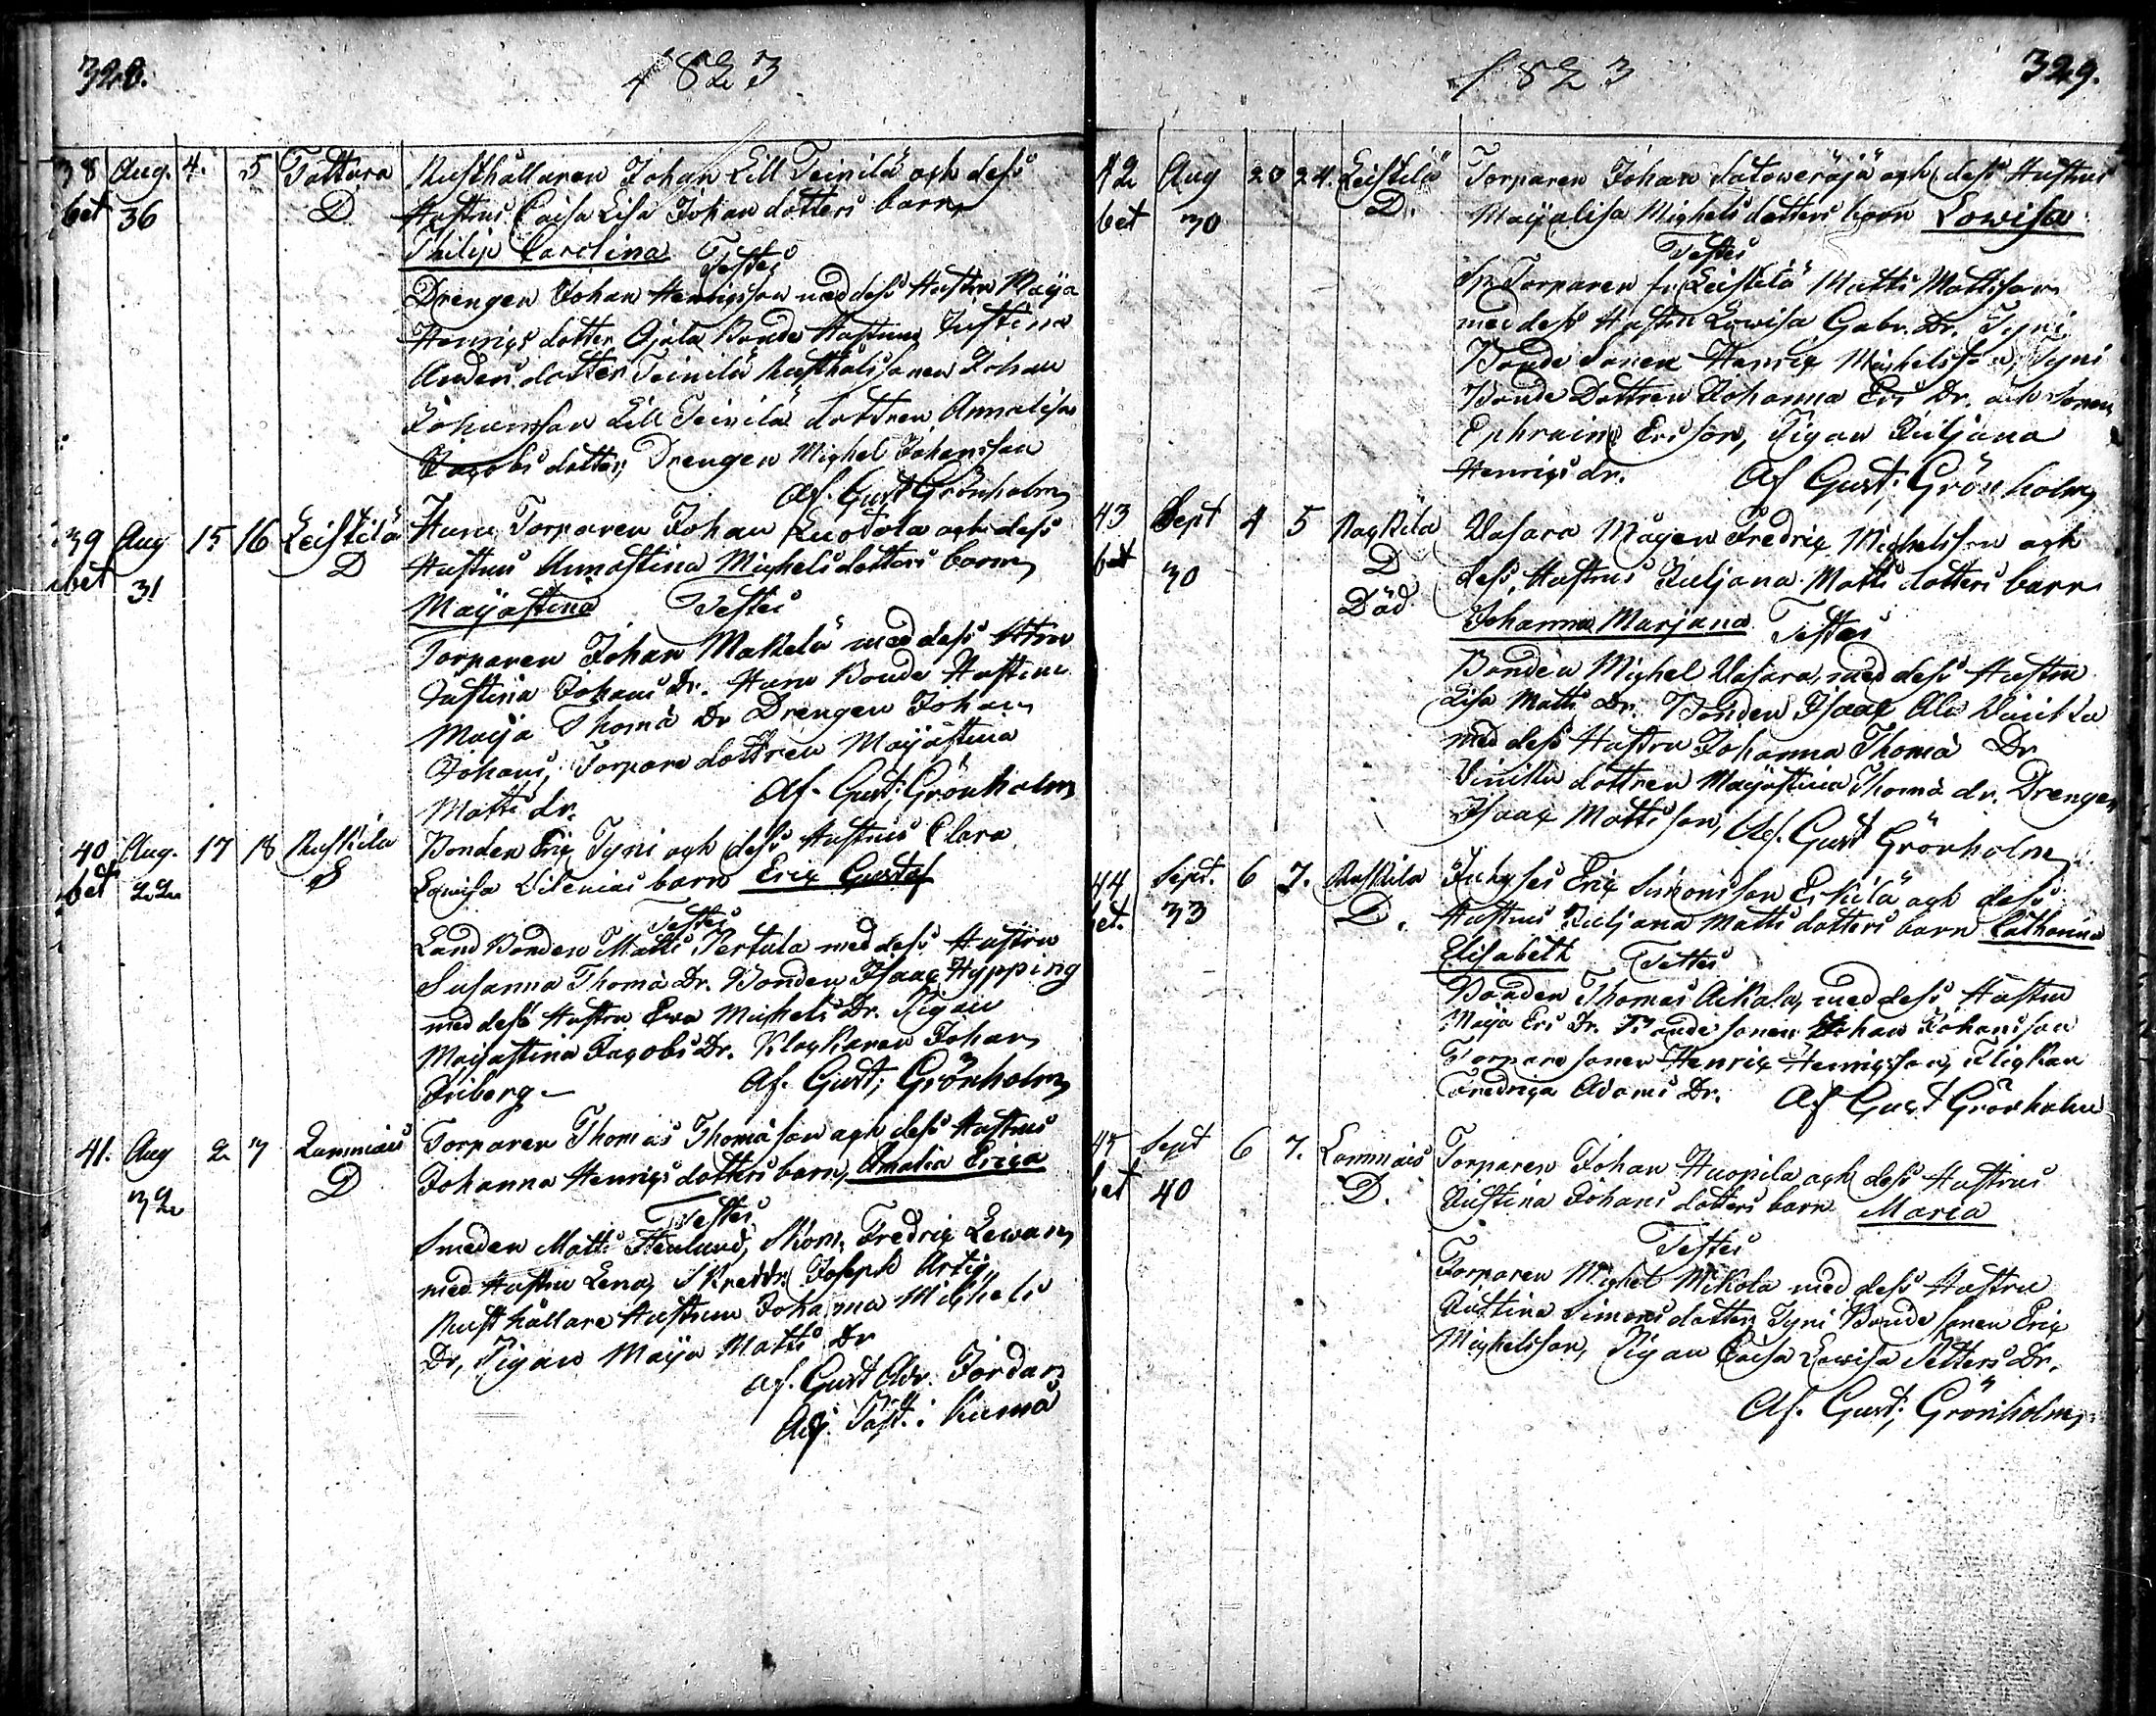 328.
1823
38 Aug. 4. 5 Tattara Rusthållaren Johan Lill Teinilä och dess
bet 36 D Hustrus Caisa Lisa Johan dotters barn
Philip Carolina Testes
Drengen Johan Henrigsson med dess Hustru Maija
Henrigs dotter, Ojala Bonde Hustrun Justina
Anders dotter Teinilä Rusthåls sonen Johan
Johansson Lill Teinilä dottren Annalisa
Jacobs dotter, Drengen Mighel Johansson
Af. Gust Grönholm
39 Aug 15 16 Leistilä Haru Torparen Johan Luodola och dess
bet 31 D Hustrus Annastina Mighels dotters barn
Maijastina Testes
Torparen Johan Makelä med dess Hstru
Justina Johans Dr. Haru Bonde Hustrun
Maija Thomä Dr Drengen Johan
Johans, Torpare dottren Maijastina
Matts dr. Af. Gust; Grönholm
40 Aug. 17 18 Ruskila Bonden Eriq Tyni och dess Hustrus Clara
bet 22 S Lowisa Vilenias barn Eriq Gustaf
Testes
Land Bonden Matts Pertula med dess Hustru
Susanna Thomä Dr. Bonden Isaac Hypping
med dess Hustru Ewa Mighels Dr. Pigan
Maijastina Jacobs Dr. Klockaren Johan
Friberg Af. Gust; Grönholm
41. Aug 2 7 Lammais Torparen Thomas Thomäson och dess Hustrus
32 D Johanna Henrigs dotters barn, Amalia Eriqa
Testes
Smeden Matts Stenlund, Skom. Fredriq Lewan
med Hustru Lena, Skreddr. Joseph Artig,
Rusthållare Hustrun Johanna Mighels
Dr, Pigan Maija Matts Dr
af. Gust Adr. Jordan
Adj. Past. i Kumå
1823
329.
42 Aug 20 24. Leistilä Torparen Johan Satoweräjä och dess Hustrus
bet 30 D. Maijalisa Mighels dotters barn Lowisa
Testes
Torparen fr. Leistilä Matts Mattsson
med dess Hustru Lowisa Gabr. Dr. Tyni
Bonde Sonen Henriq Mighelsson, Tyni
Bonde Dottren Johanna Ers Dr. och Sonen
Ephraim Ersson, Pigan Juljana
Henrigs dr. Af Gust; Grönholm
43 Sept 4 5 Ragkila Vasara Mågen Fredriq Mighelsson och
bet 30 D dess Hustrus Juljana Matts dotters barn
Död Johanna Marjana Testes
Bonden Mighel Vasara, med dess Hustru
Lisa Matts Dr. Bonden Isaac Ala
med dess Hustru Johanna Thomä Dr
dottren Maijastina Thomä dr. Drengen
Isaac Mattsson, Af. Gust Grönholm
44 Sept. 6 7. Ruskila Inhyses Eriq Simonsson Erkilä och dess
bet. 33 D. Hustrus Juljana Matts dotters barn Catharina
Elisabeth Testes
Bonden Thomas Aikala, med dess Hustru
Maija Ers Dr. Bonde sonen Johan Johansson
Torpare sonen Henriq Henrigsson, Fligkan
Fredriqa Adams Dr. Af Gust Grönholm
45 Sept 6 7. Lammais Torparen Johan Huopila och dess Hustrus
bet 40 D. Justina Johans dotters barn Maria
Testes
Torparen Mighel Mikola med dess Hustru
Justina Simons dotter, Tyni Bonde sonen Eriq
Mighelsson, Pigan Caisa Lowisa Petters Dr.
Af. Gust; Grönholm